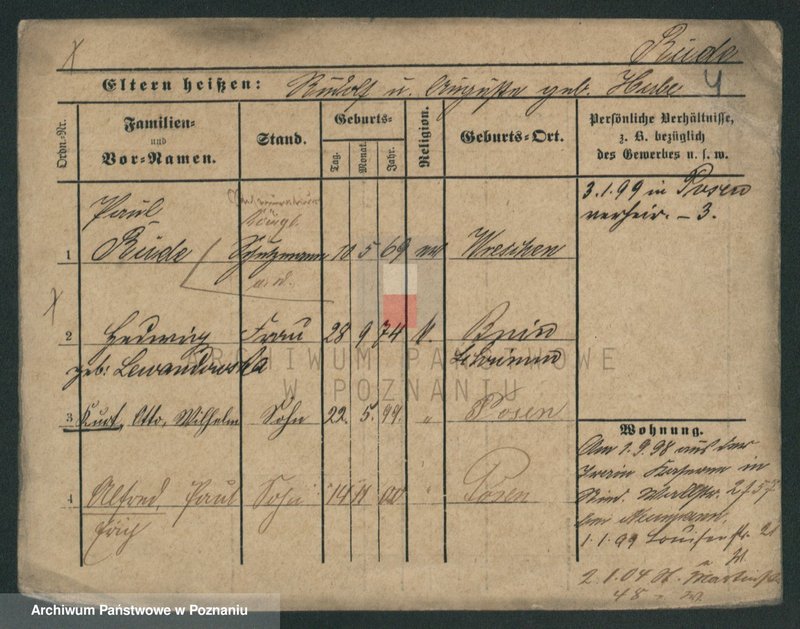 Rude
Eltern heißen: Rudolf u. Auguste geb. Hube 4
Ordn.-Nr.
Familien- und Vor-Namen.
Stand.
Geburts-
Tag. Monat. Jahr.
Religion.
Geburts-Ort.
Persönliche Verhältnisse, z. B. bezüglich des Gewerbes u. s. w.
Paul
1 Rude Schutzmann 10 5 69 Wreschen
3.1.99 in Posen
verheir. – 3.
2 Hedwig Frau 28 9 74 k. Bnin
geb. Lewandowska
3 Kurt, Otto, Wilhelm Sohn 22. 5. 99. " Posen
4 Alfred, Paul Sohn 14 11 00 " Posen
Wohnung.
Am 1.9.98 aus der
Train Kaserne in
Wallstr.
Neumann
1.1.99 Louisenstr.
2.1.04 St. Martinstr.
48
ARCHIWUM PAŃSTWOWE
W POZNANIU
Archiwum Państwowe w Poznaniu